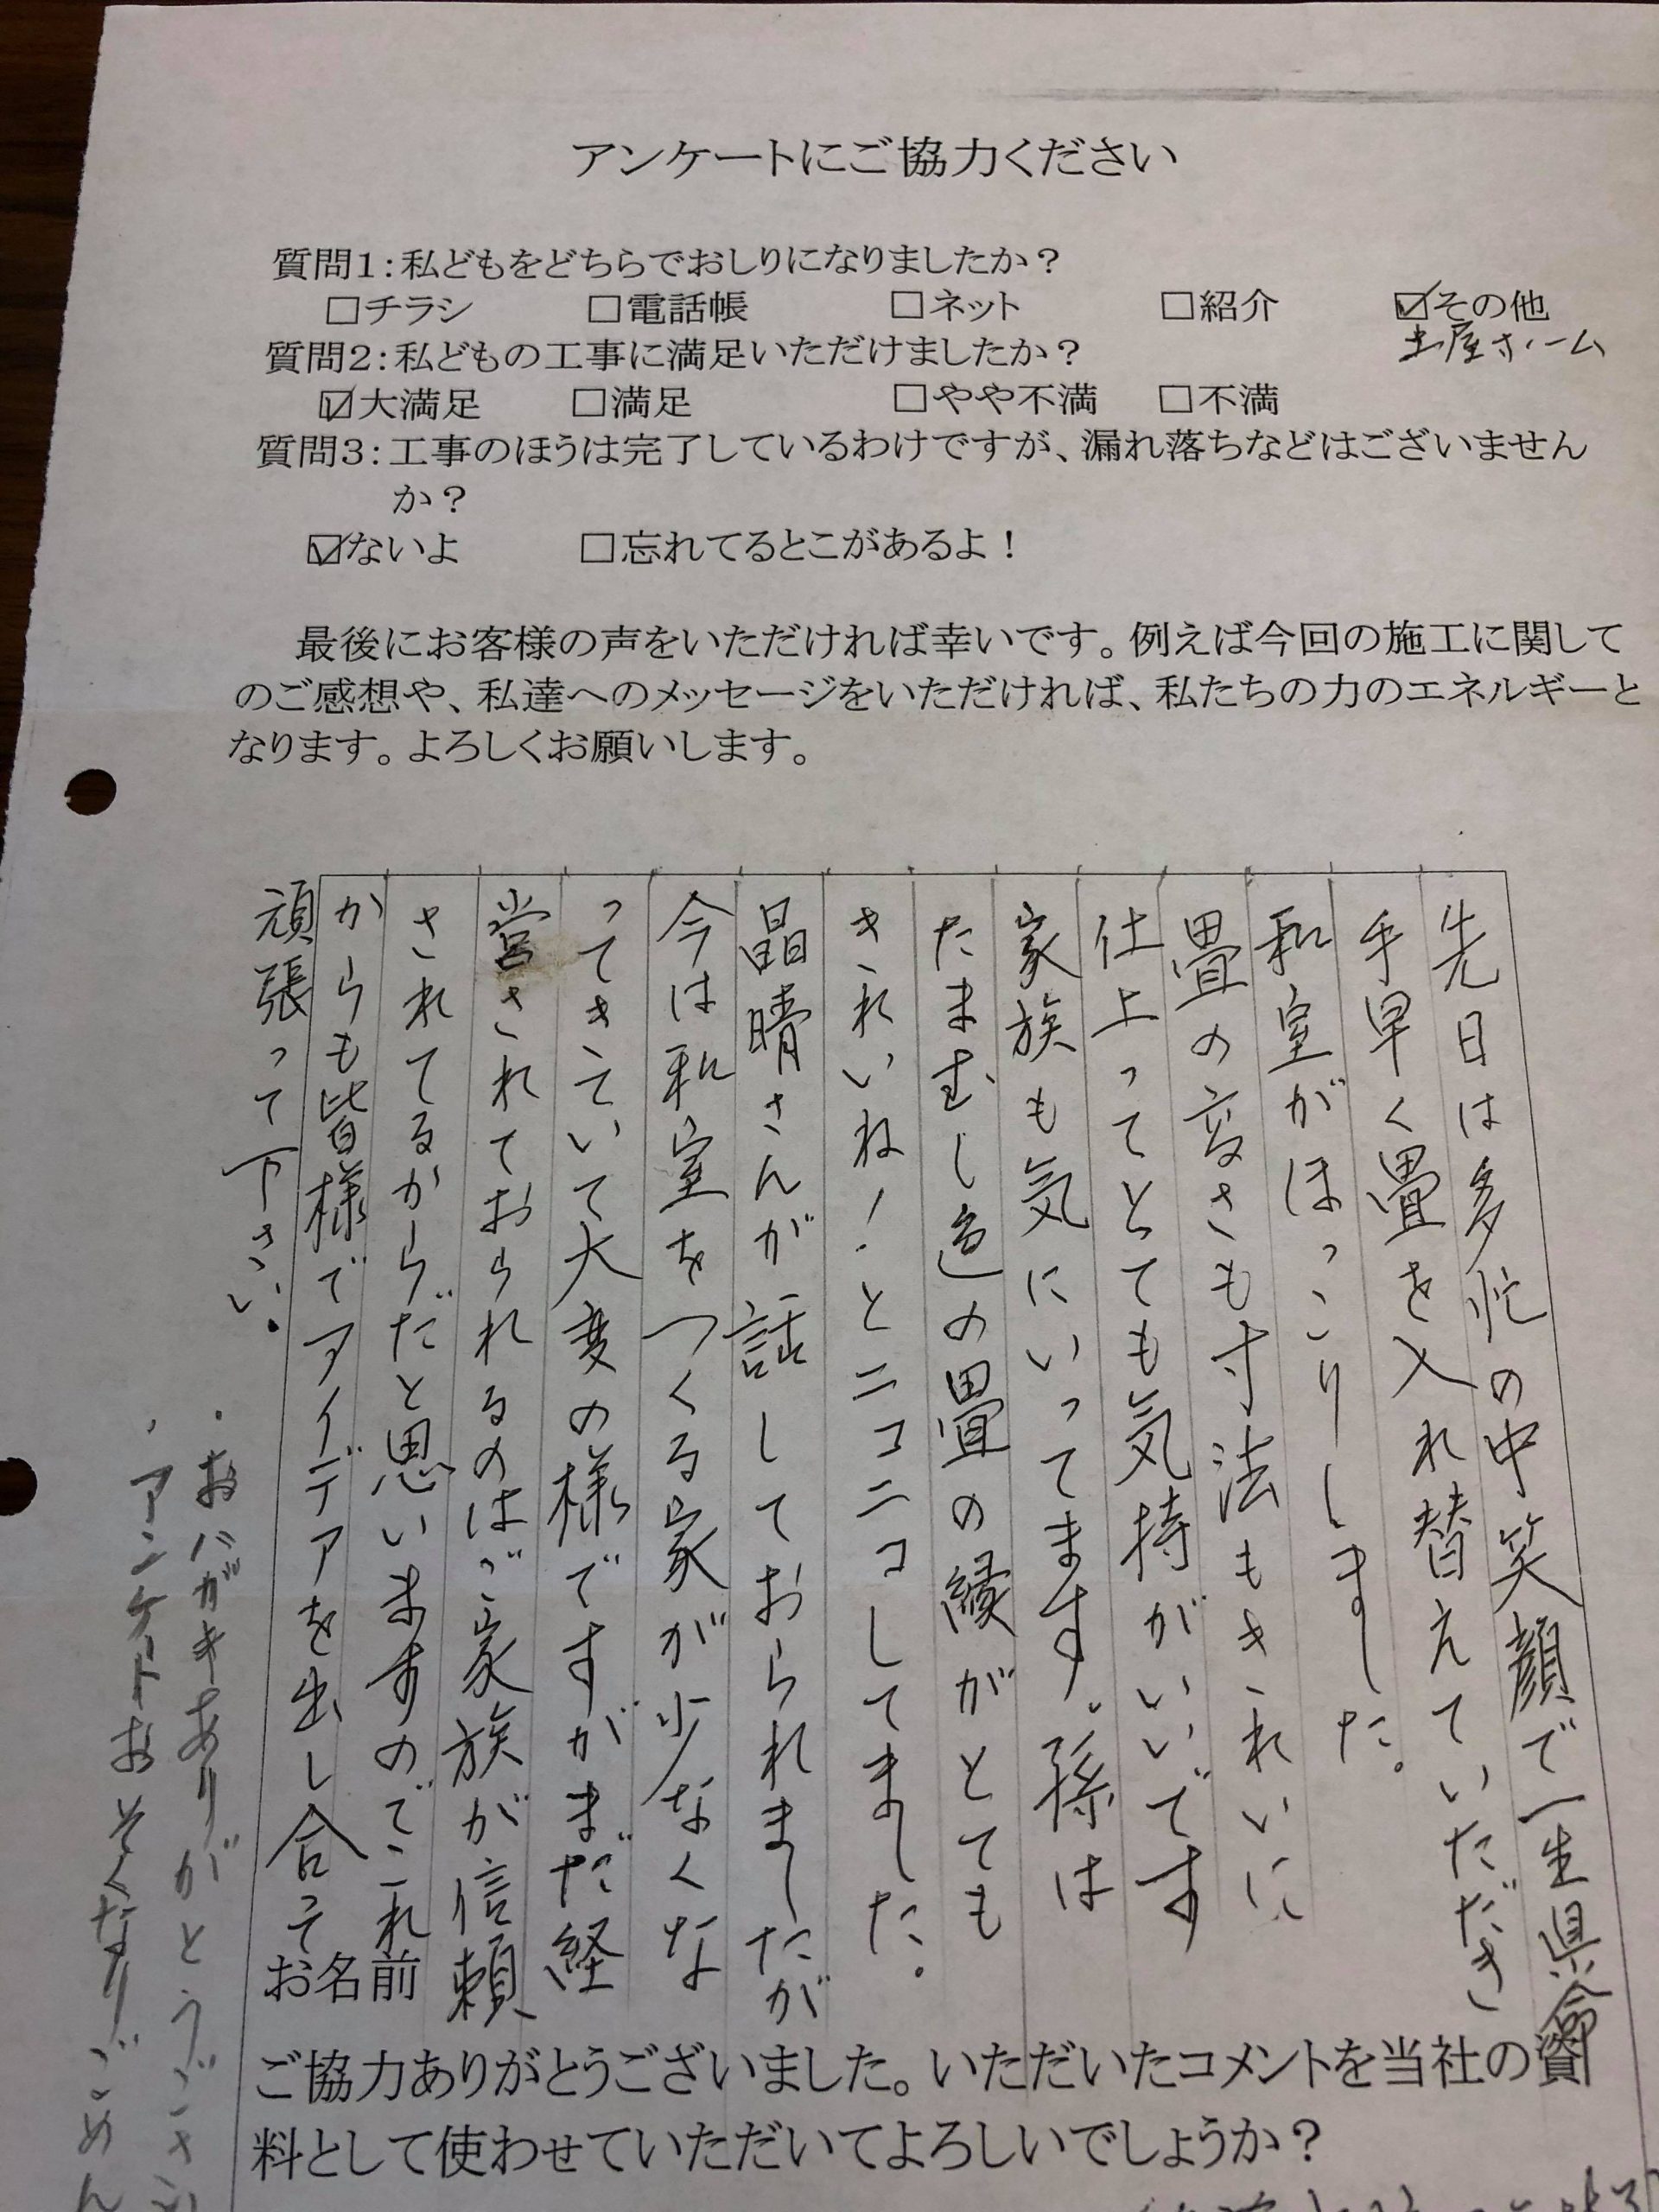 アンケートにご協力ください
質問1：私どもをどちらでおしりになりましたか？
□チラシ □電話帳 □ネット □紹介 ☑その他
土屋ホーム
質問2：私どもの工事に満足いただけましたか？
☑大満足 □満足 □やや不満 □不満
質問3：工事のほうは完了しているわけですが、漏れ落ちなどはございません
か？
☑ないよ □忘れてるとこがあるよ！
最後にお客様の声をいただければ幸いです。例えば今回の施工に関して
のご感想や、私達へのメッセージをいただければ、私たちの力のエネルギーと
なります。よろしくお願いします。
先日は多忙の中笑顔で一生県命
手早く畳を入れ替えていただき
和室がほっこりしました。
畳の変さも寸法もきれいに
仕上ってとても気持がいいです
家族も気にいってます。孫は
たまむし色の畳の縁がとても
きれいね！とニコニコしてました。
晶晴さんが話しておられましたが
今は和室をつくる家が少なくな
ってきていて大変の様ですがまだ経
営されておられるのはご家族が信頼
されてるからだと思いますのでこれ
からも皆様でアイデアを出し合って
頑張って下さい。
・おハガキありがとうござい
・アンケートおそくなりごめん
お名前
ご協力ありがとうございました。いただいたコメントを当社の資
料として使わせていただいてよろしいでしょうか？